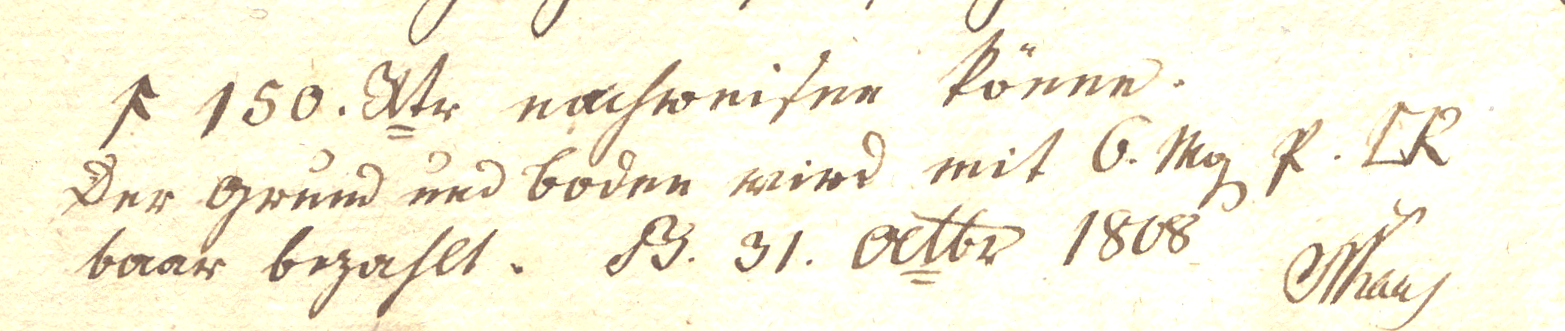 150. Rtr nachweisen könne.
Der Grund und boden wird mit 6. Mg P. LR
baar bezahlt. B. 31. Octbr 1808